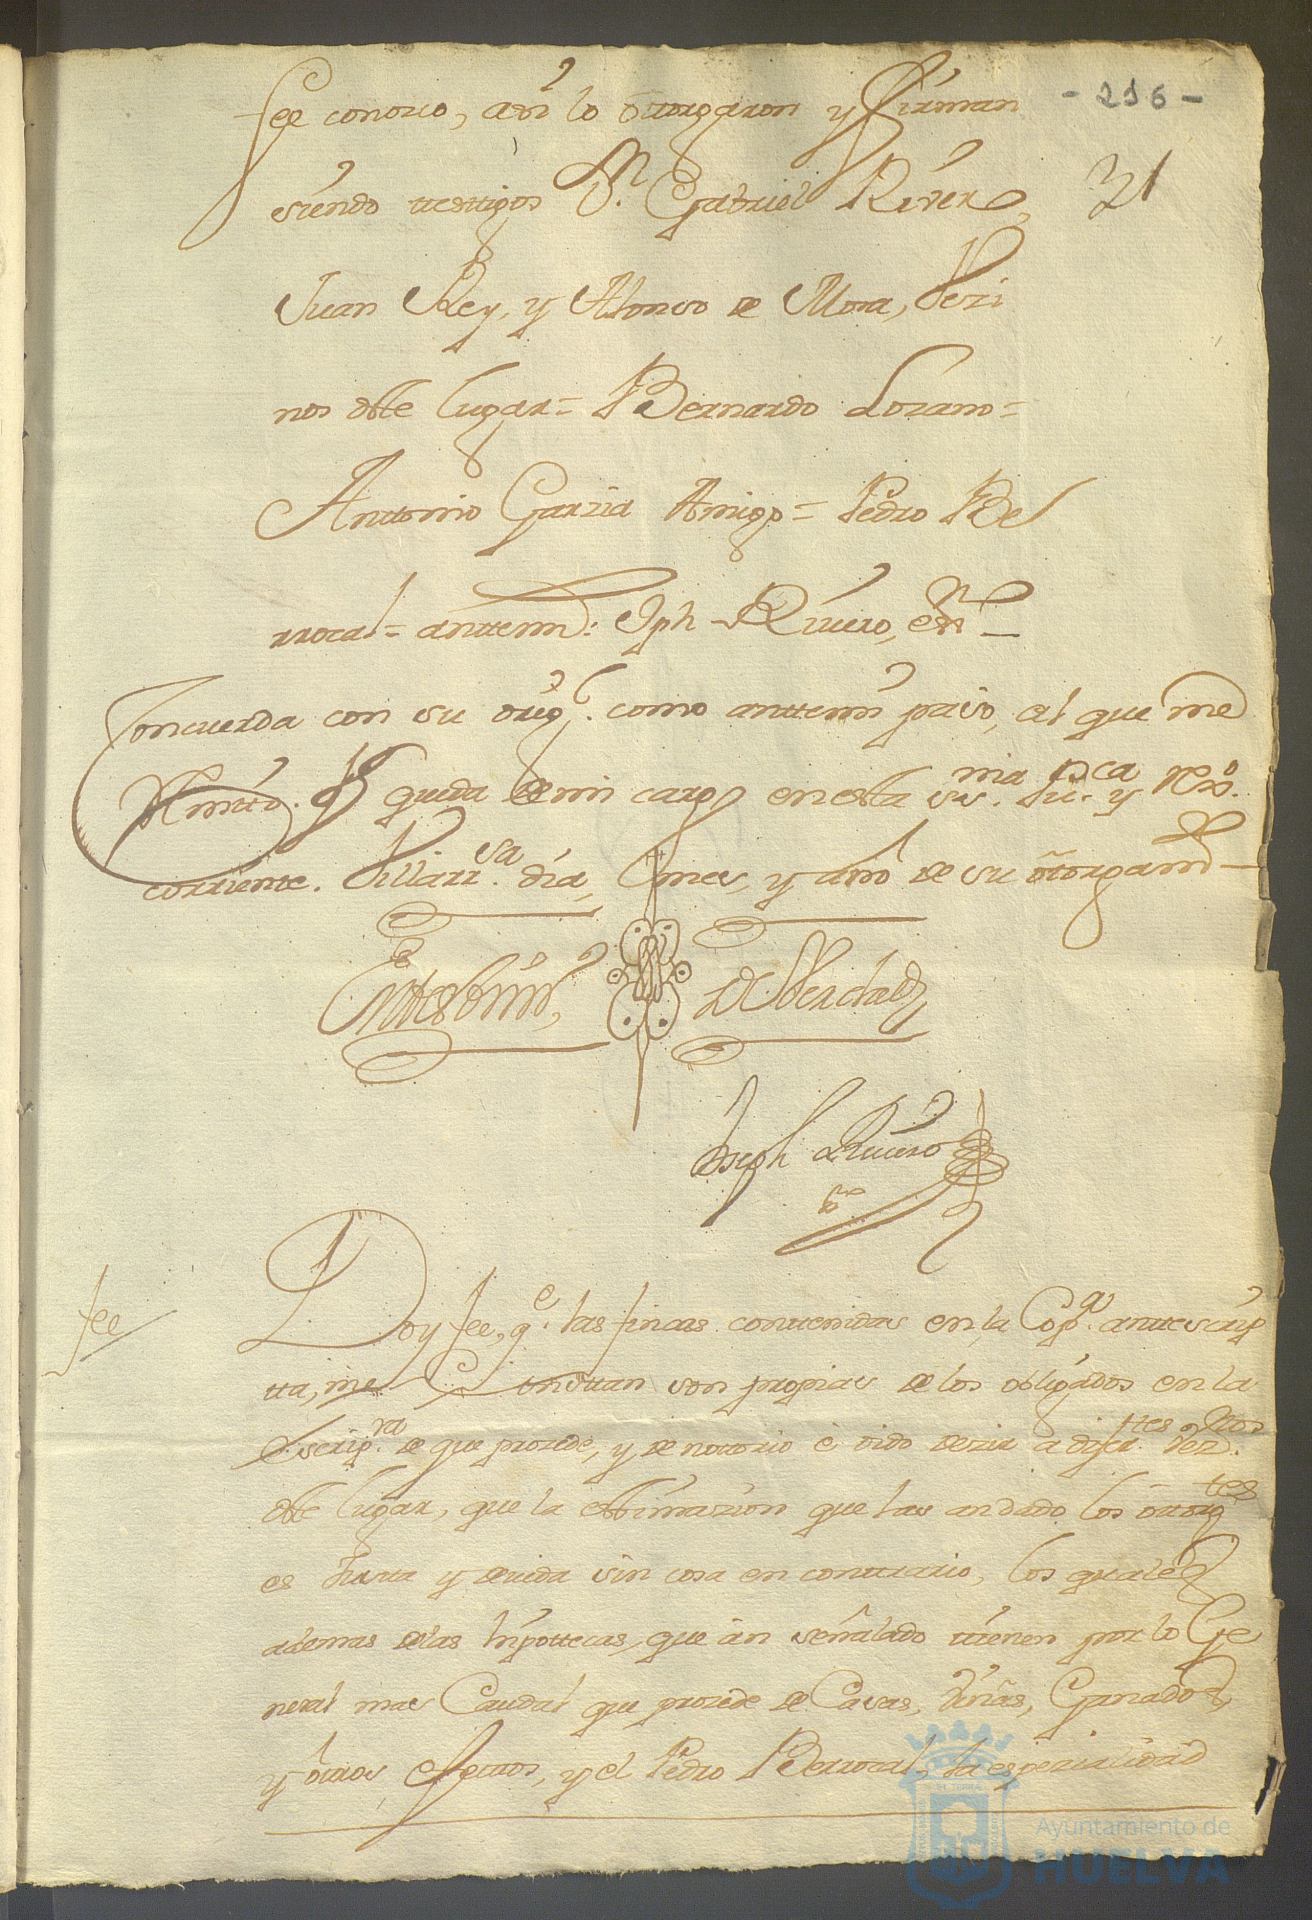 - 216 -
31
fee conozco, assi lo ôttorgaron y firman
siendo ttesttigos Dn. Gabriel Rivero,
Juan Rey, y Alonso de Mora, Vezi
nos dste Lugar = Bernardo Lozano =
Anttonio Garzia Amigo = Pedro Be
rrocal = anttemi: Jph Rivero, essno
Concuerda con su orijl. como anttemi paso, al que me
Remitto. qe queda de mi cargo en esta ssma. pca y Rexo.
corriente. Villarrsa. dia, mes, y año de su ôttorgamto
En ttesttimo de Verdad
Joseph Rivero
sno
fee
Doy fee, qe. las fincas conttenidas en la Copa. anttescrip
tta, me Consttan son propias de los obligados en la
Escripra. de que prozede, y de nottorio è oido dezir a difertes Vezos.
dste Lugar, que la esttimazion que las an dado los ôttorgtes
es Justta y devida sin cosa en conttrario, los quales
ademas delas Hipottecas, que ân señalado ttienen por lo Ge
neral mas Caudal que prozede de Casas, Viñas, Ganados,
y ôttros efecttos, y el Pedro Berrocal, la espezialidad
Ayuntamiento de
HUELVA